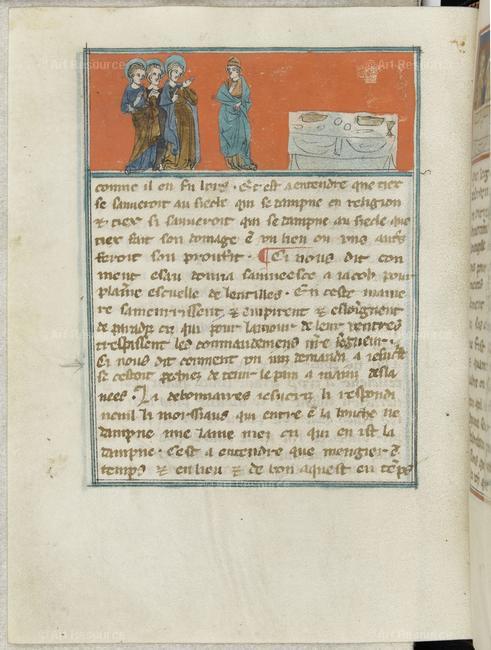 comme il en fu lors . Et est a entendre que tier
se sauveront au siecle qui se dampne en religion
& tier si sauveront qui se dampne au siecle que
tier fait son domage ē un lieu ou uns autres
feroit son proufit . Ci nous dit con
ment esau donna sainneesce a iacob pour
plaine escuelle de lentilles . En ceste manie
re & empirent & esloingnent
de paradis cil qui pour lamour de leur ventres
trespassent les commandemens
Ci nous dit conment un iuif demanda a iesucrist
se cestoit pechiez de tenir le pain a mains desla
vees . Li debonnaires iesucriz li respondi
nenil li morssiaus qui entre ē la bouche ne
dampne mie lame mez cil qui en ist la
dampne . Cest a entendre que mengier ē
temps & en lieu & de bon aquest en tēps